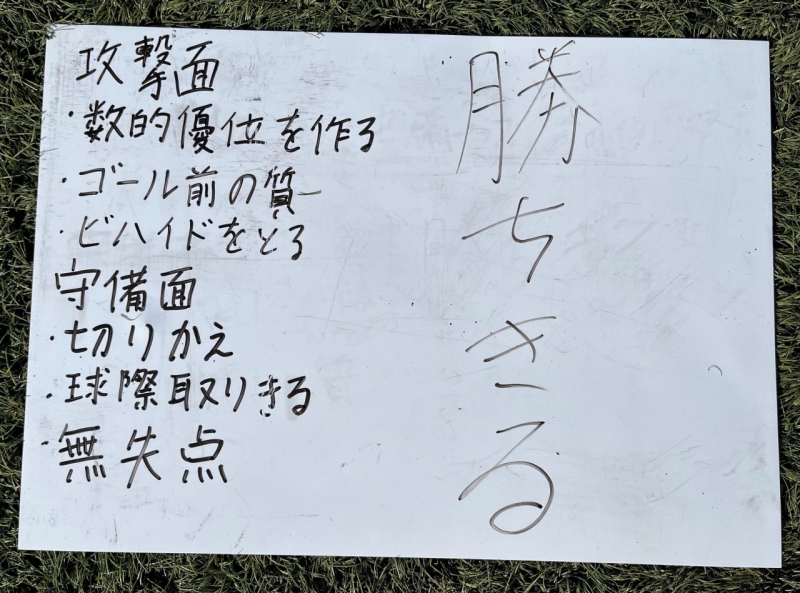 攻撃面
・数的優位を作る
・ゴール前の質
・ビハイドをとる
守備面
・切りかえ
・球際取りきる
・無失点
勝ちきる